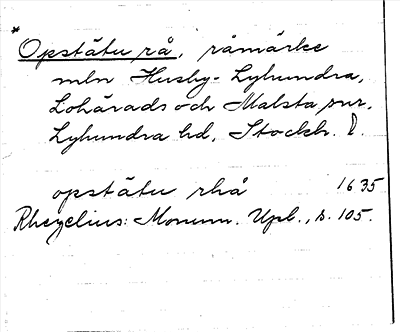 *
Opstätu rå, råmärke
mln Husby-Lyhundra,
Lohärads och Malsta snr,
Lyhundra hd, Stockh. l.
opstätu rhå 1635
Rhezelius: Monum. Upl., s. 105.